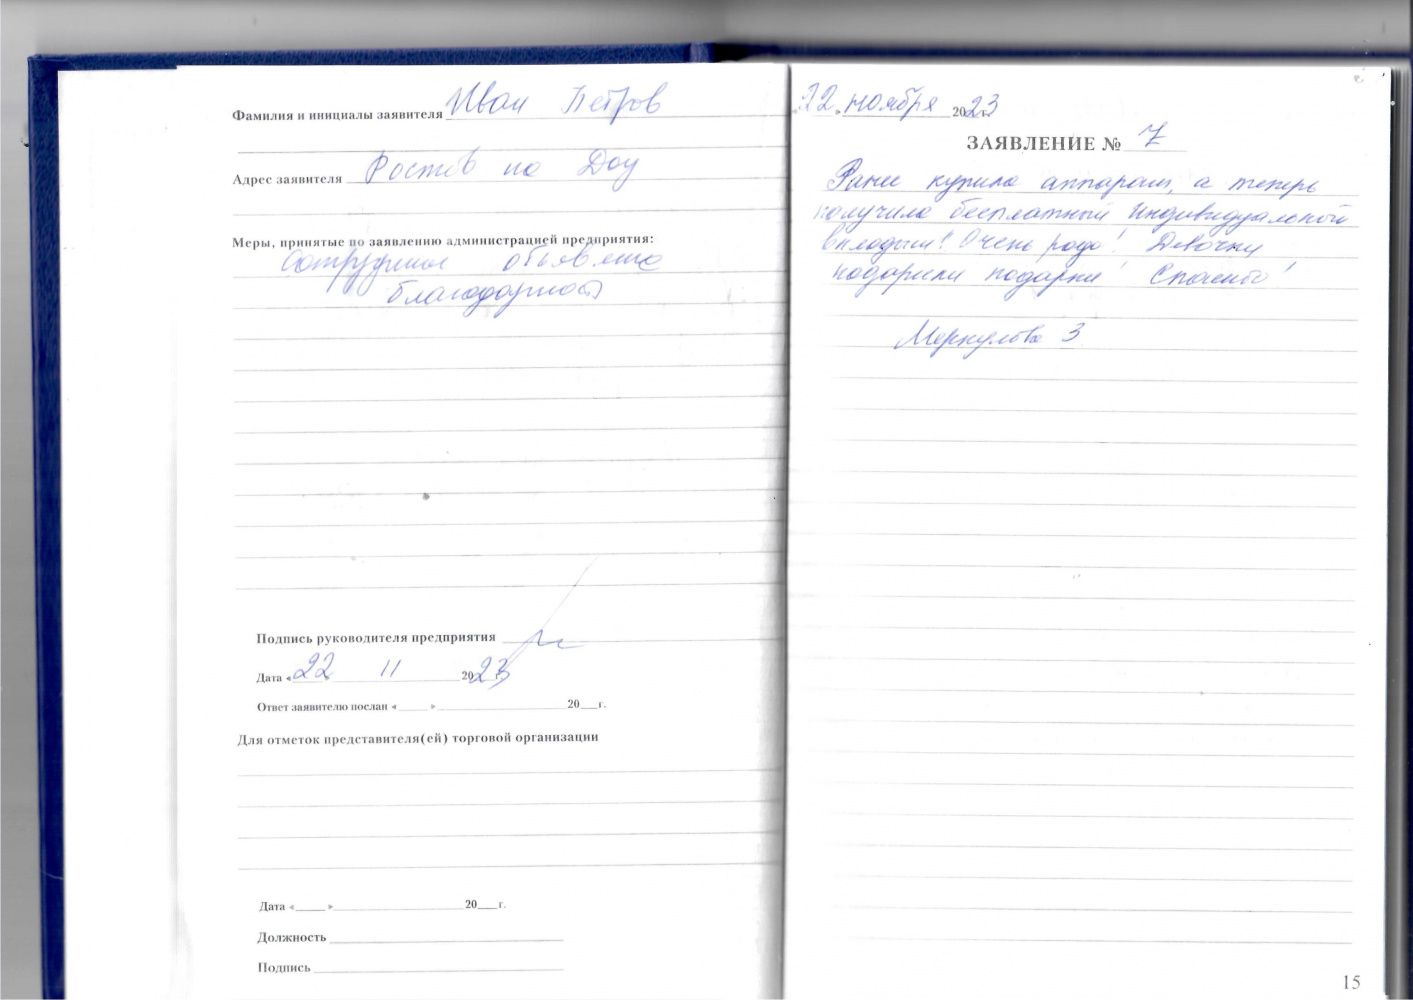 Фамилия и инициалы заявителя Иван Петров
Адрес заявителя Ростов на Дону
Меры, принятые по заявлению администрацией предприятия:
Сотруднице объявлена
благодарность
Подпись руководителя предприятия
Дата «22 11 2023 г.
Ответ заявителю послан «____ » ____ 20__г.
Для отметок представителя(ей) торговой организации
Дата «____ » ____ 20__г.
Должность
Подпись
22 » ноября 2023 г.
ЗАЯВЛЕНИЕ № 7
Ранее купила аппарат, а теперь
получила бесплатный индивидуальной
вкладыш". Очень рада! Девочки
подарили подарки! Спасибо!
Меркулова З
15